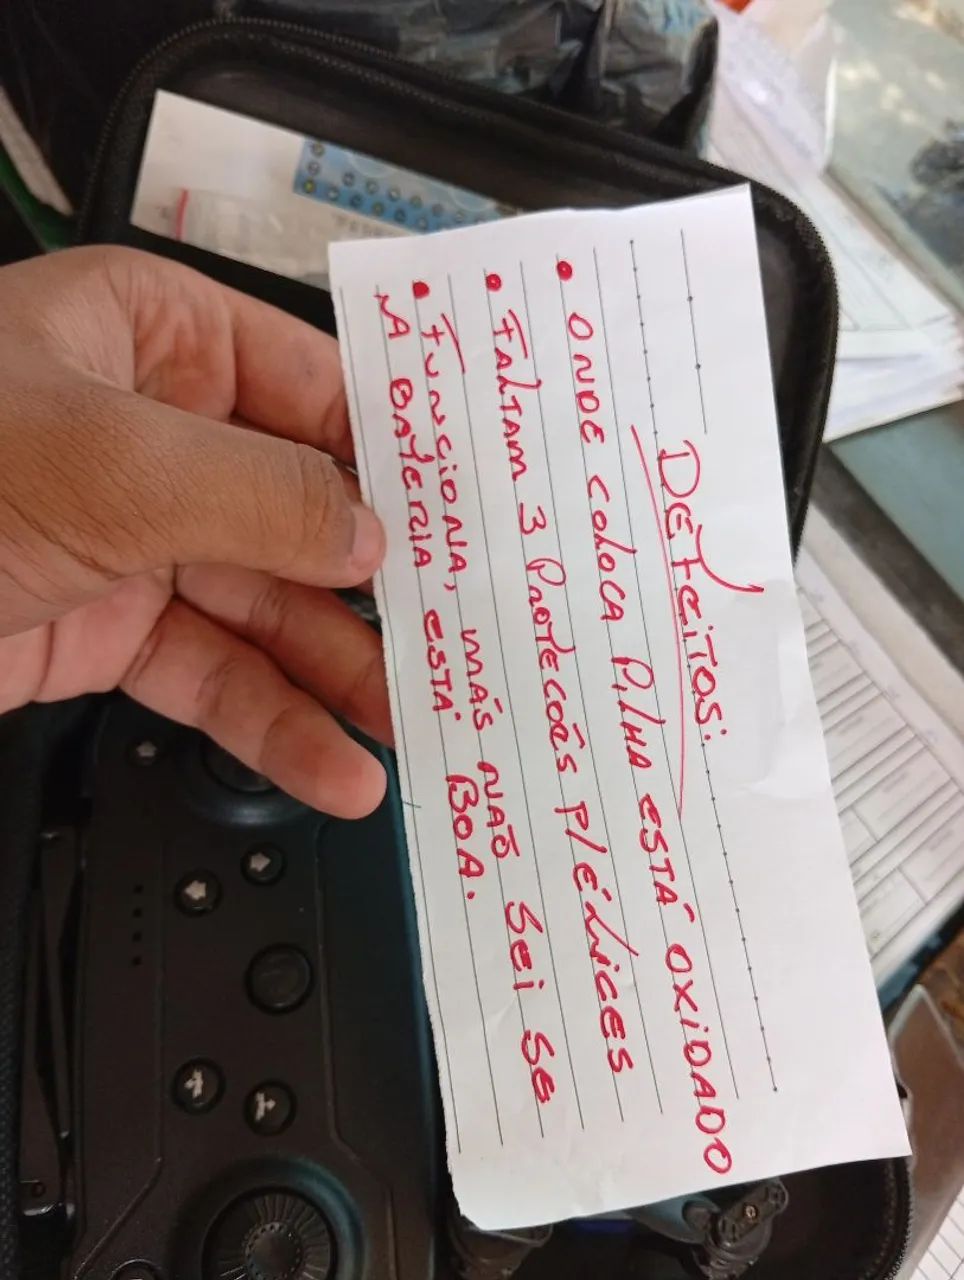 DEFEITOS:
• ONDE COLOCA PILHA ESTÁ OXIDADO
• FALTAM 3 PROTECOÊS P/ ÉLICES
• FUNCIONA, MÁS NAÕ SEI SE
NA BATERIA ESTÁ BOA.